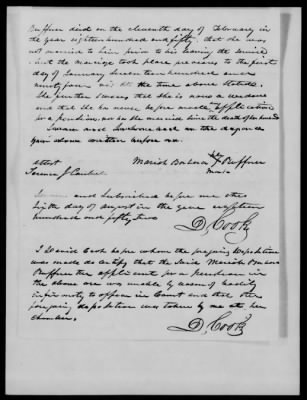 Buffner died on the eleventh day of February in
the year eighteen hundred and fifty, that she was
not married to him prior to his leaving the service
but the marriage took place previous to the first
day of January seventeen hundred and
ninety four viz. At the time above stated
She further swears that she is now a widow
and that she has never before made application
for a pension, nor has she married since the death of her husband
Sworn and Subscribed on the day and
year above written before me
attest
her
mark
Sworn and Subscribed before me this
eighth day of august in the year eighteen
hundred and fifty two
D. Cook
I David Cook before whom the foregoing deposition
was made do certify that the Said
Buffner the applicant for a pension in
the above was unable by reason of bodily
infirmity to appear in Court and that the
foregoing deposition was taken by me at her
D. Cook